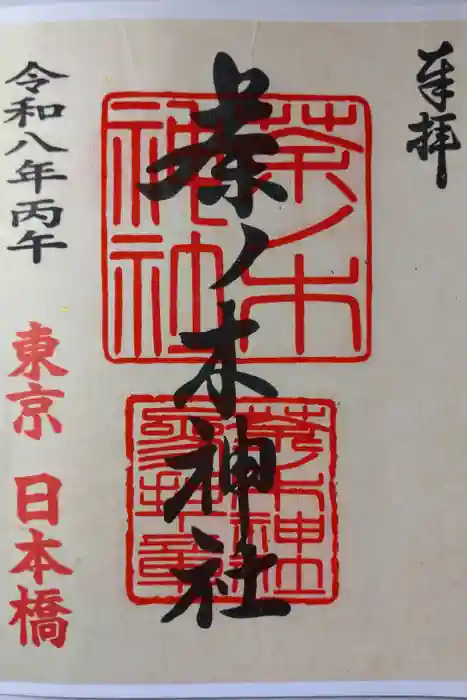 奉拝
茶ノ木神社
茶ノ木
神社
茶ノ木神社
令和八年丙午
東京 日本橋